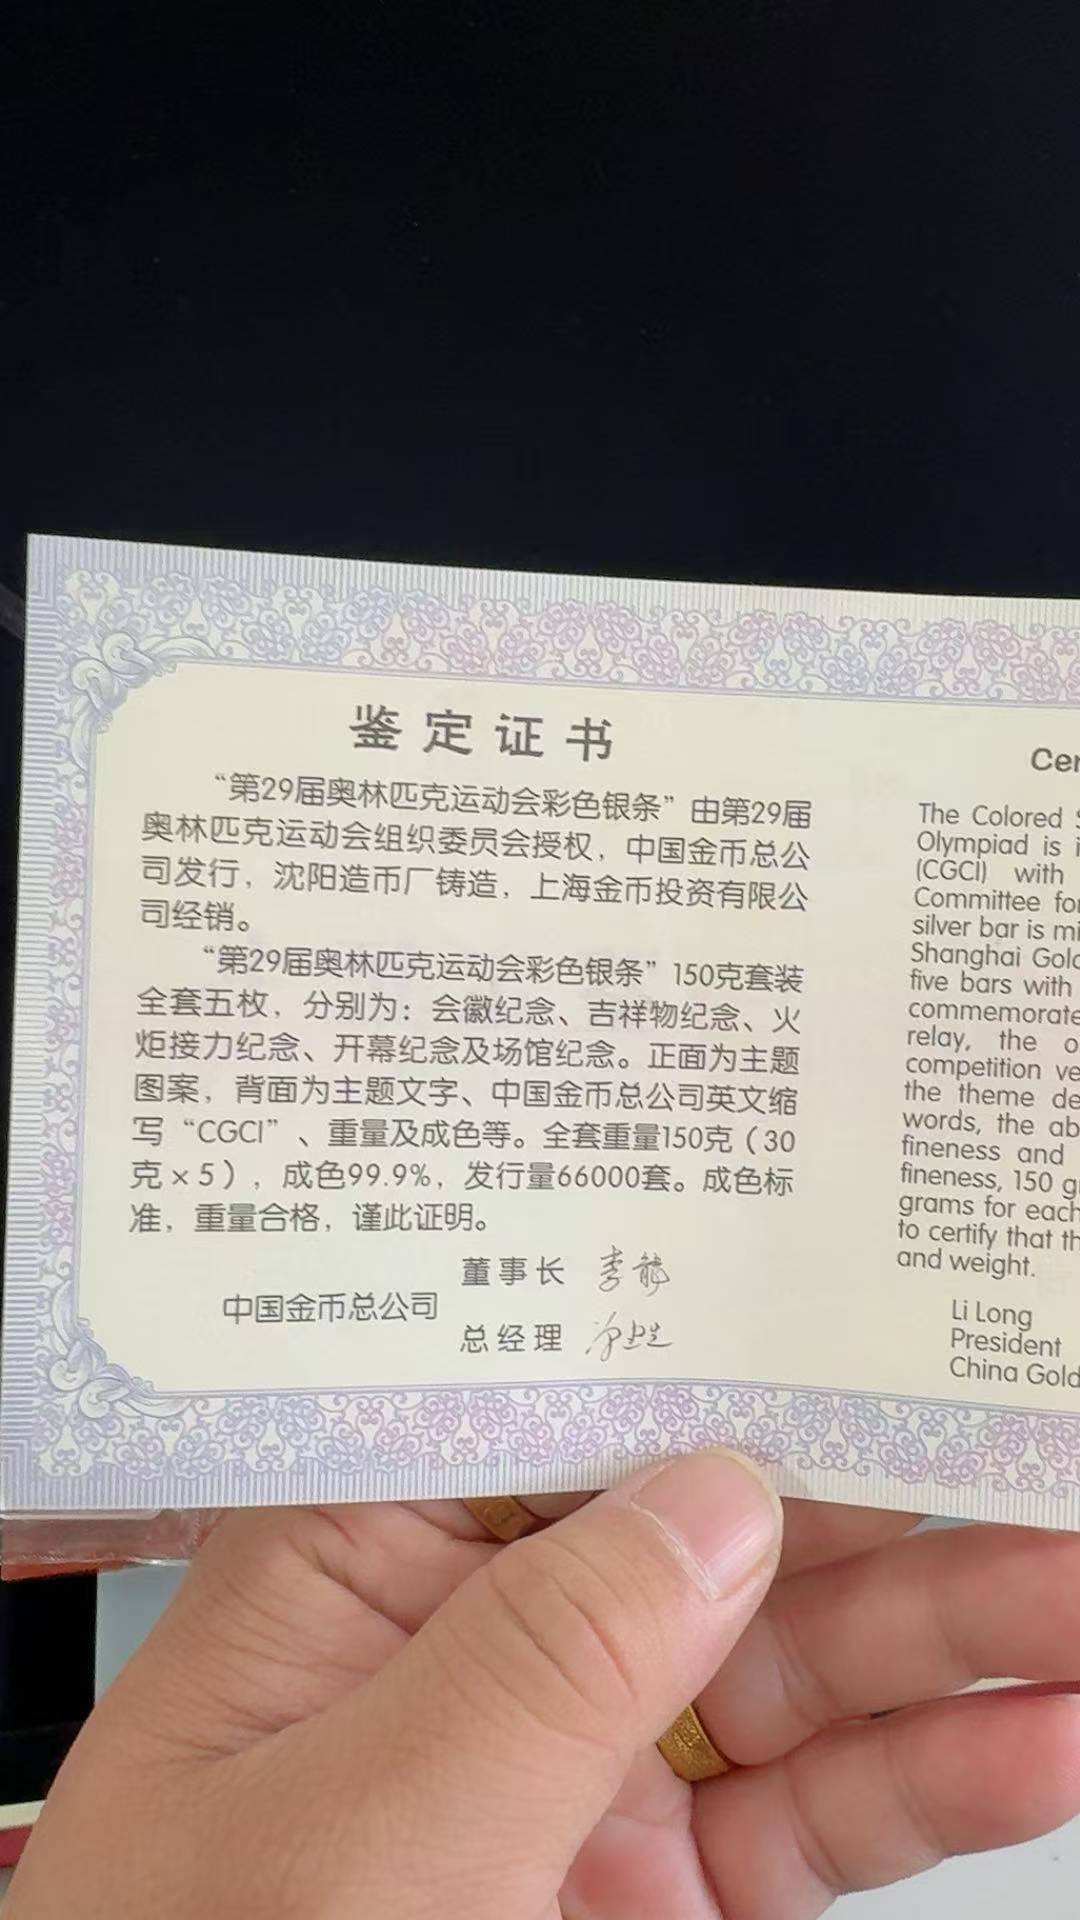 鉴定证书
“第29届奥林匹克运动会彩色银条”由第29届
奥林匹克运动会组织委员会授权，中国金币总公
司发行，沈阳造币厂铸造，上海金币投资有限公
司经销。
“第29届奥林匹克运动会彩色银条”150克套装
全套五枚，分别为：会徽纪念、吉祥物纪念、火
炬接力纪念、开幕纪念及场馆纪念。正面为主题
图案，背面为主题文字、中国金币总公司英文缩
写“CGCI”、重量及成色等。全套重量150克（30
克×5），成色99.9%，发行量66000套。成色标
准，重量合格，谨此证明。
中国金币总公司
董事长 李龍
总经理
Cer
The Colored S
Olympiad is i
(CGCI) with
Committee for
silver bar is mi
Shanghai Gold
five bars with
commemorate
relay, the o
competition ve
the theme de
words, the ab
fineness and
fineness, 150 g
grams for each
to certify that th
and weight.
Li Long
President
China Gold